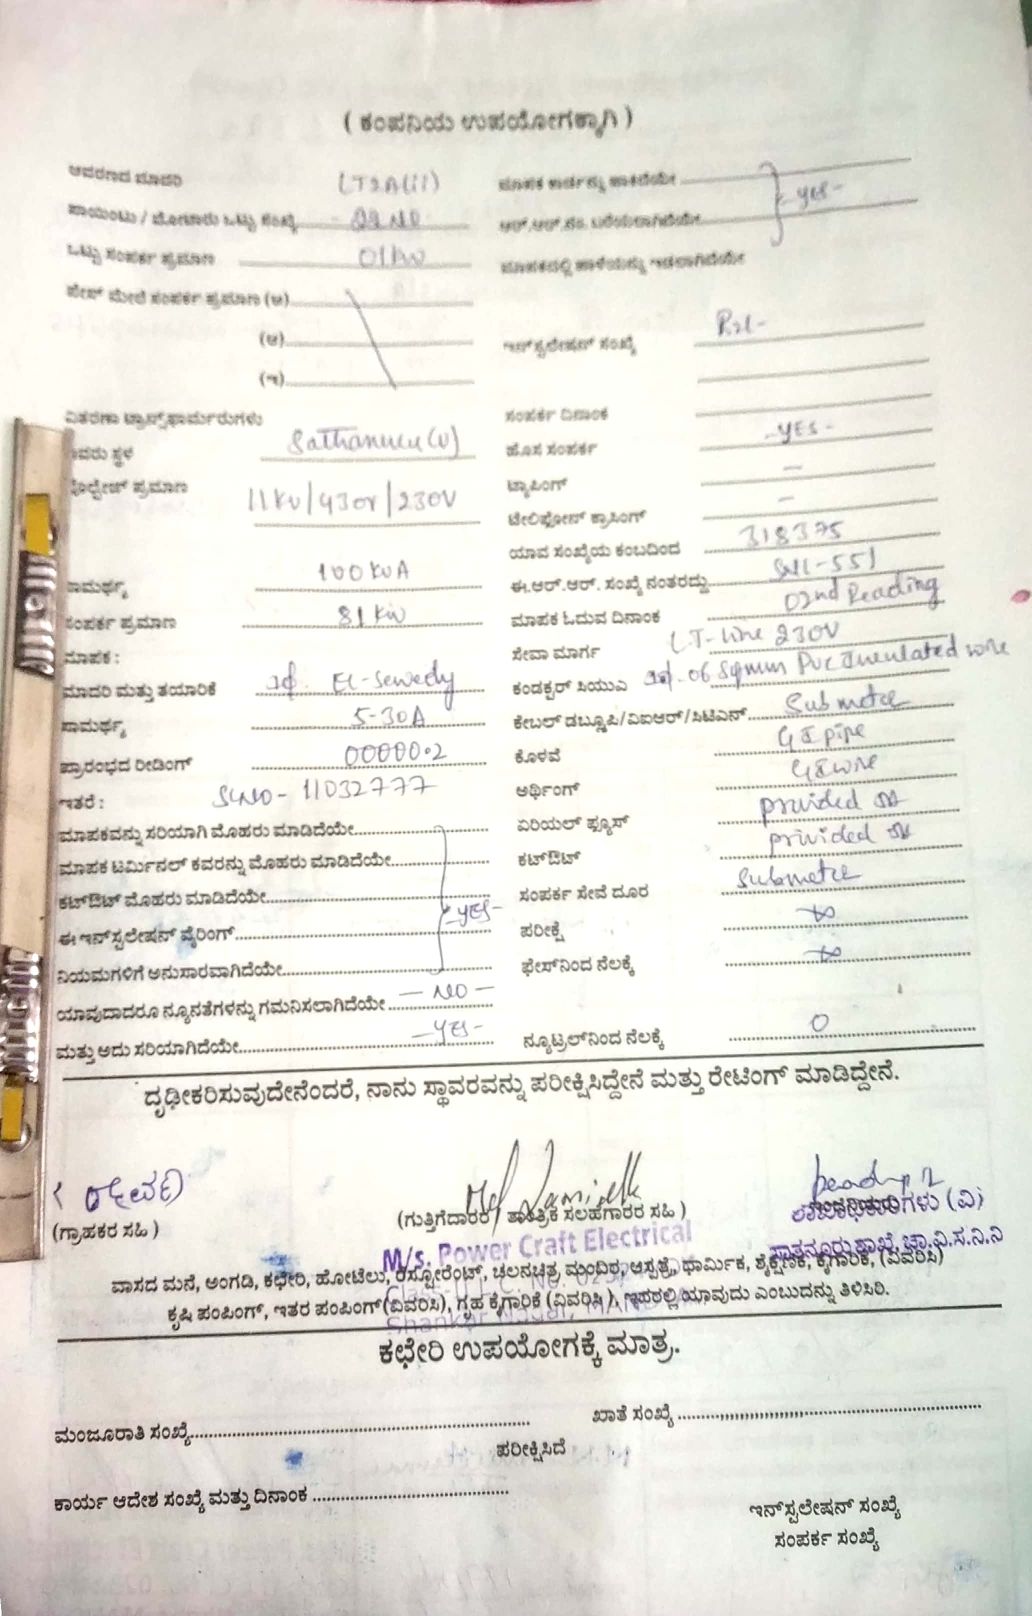 ( ಕಂಪನಿಯ ಉಪಯೋಗಕ್ಕಾಗಿ )
ಆವರಣದ ಮಾದರಿ LT2A(ii) ಮಾಪಕ ಕಾರ್ಡನ್ನು ಹಾಕಿದೆಯೇ
ಪಾಯಿಂಟು / ಮೋಟಾರು ಒಟ್ಟು ಸಂಖ್ಯೆ ಆರ್.ಆರ್.ನಂ. ಬರೆಯಲಾಗಿದೆಯೇ - yes -
ಒಟ್ಟು ಸಂಪರ್ಕ ಪ್ರಮಾಣ 01KW ಮಾಪಕದಲ್ಲಿ ಹಾಳೆಯನ್ನು ಇಡಲಾಗಿದೆಯೇ
ಫೇಸ್ ಮೇಲೆ ಸಂಪರ್ಕ ಪ್ರಮಾಣ (ಅ)
(ಆ) ಇನ್‌ಸ್ಟಲೇಷನ್ ಸಂಖ್ಯೆ
(ಇ)
ವಿತರಣಾ ಟ್ರಾನ್ಸ್‌ಫಾರ್ಮರುಗಳು ಸಂಪರ್ಕ ದಿನಾಂಕ
ಸ್ಥಳ Sathanuru(V) ಹೊಸ ಸಂಪರ್ಕ - YES -
ಪ್ರಮಾಣ 11KV/430V/230V ಟ್ಯಾಪಿಂಗ್ —
ಟೆಲಿಫೋನ್ ಕ್ರಾಸಿಂಗ್ —
ಯಾವ ಸಂಖ್ಯೆಯ ಕಂಬದಿಂದ 318375
ಸಾಮರ್ಥ್ಯ 100KVA ಈ.ಆರ್.ಆರ್. ಸಂಖ್ಯೆ ನಂತರದ್ದು
ಸಂಪರ್ಕ ಪ್ರಮಾಣ 81KW ಮಾಪಕ ಓದುವ ದಿನಾಂಕ 02nd Reading
ಮಾಪಕ : ಸೇವಾ ಮಾರ್ಗ L.T- line 230V
ಮಾದರಿ ಮತ್ತು ತಯಾರಿಕೆ 1φ. El-Sewedy ಕಂಡಕ್ಟರ್ ಸಿಯುಎ 1φ. 06 Sqmm PVC Insulated wire
ಸಾಮರ್ಥ್ಯ 5-30A ಕೇಬಲ್ ಡಬ್ಲೂಪಿ/ವಿಐಆರ್/ಸಿಟಿಎಸ್ Submeter
ಪ್ರಾರಂಭದ ರೀಡಿಂಗ್ 00000.2 ಕೊಳವೆ GI pipe
ಇತರೆ : SLNO - 11032777 ಅರ್ಥಿಂಗ್ GI wire
ಮಾಪಕವನ್ನು ಸರಿಯಾಗಿ ಮೊಹರು ಮಾಡಿದೆಯೇ ಏರಿಯಲ್ ಫ್ಯೂಸ್ provided
ಮಾಪಕ ಟರ್ಮಿನಲ್ ಕವರನ್ನು ಮೊಹರು ಮಾಡಿದೆಯೇ ಕಟ್‌ಔಟ್ privided
ಕಟ್‌ಔಟ್ ಮೊಹರು ಮಾಡಿದೆಯೇ ಸಂಪರ್ಕ ಸೇವೆ ದೂರ Submeter
ಈ ಇನ್‌ಸ್ಟಲೇಷನ್ ವೈರಿಂಗ್ - YES - ಪರೀಕ್ಷೆ ∞
ನಿಯಮಗಳಿಗೆ ಅನುಸಾರವಾಗಿದೆಯೇ ಫೇಸ್‌ನಿಂದ ನೆಲಕ್ಕೆ ∞
ಯಾವುದಾದರೂ ನ್ಯೂನತೆಗಳನ್ನು ಗಮನಿಸಲಾಗಿದೆಯೇ — NO —
ಮತ್ತು ಅದು ಸರಿಯಾಗಿದೆಯೇ — YES - ನ್ಯೂಟ್ರಲ್‌ನಿಂದ ನೆಲಕ್ಕೆ 0
ದೃಢೀಕರಿಸುವುದೇನೆಂದರೆ, ನಾನು ಸ್ಥಾವರವನ್ನು ಪರೀಕ್ಷಿಸಿದ್ದೇನೆ ಮತ್ತು ರೇಟಿಂಗ್ ಮಾಡಿದ್ದೇನೆ.
(ಗ್ರಾಹಕರ ಸಹಿ ) (ಗುತ್ತಿಗೆದಾರರ / ತಾಂತ್ರಿಕ ಸಲಹಗಾರರ ಸಹಿ ) ಶಾಖಾಧಿಕಾರಿಗಳು (ವಿ)
M/s. Power Craft Electrical ಸಾತನೂರು ಶಾಖೆ, ಚಾ.ವಿ.ಸ.ನಿ.ನಿ
ವಾಸದ ಮನೆ, ಅಂಗಡಿ, ಕಛೇರಿ, ಹೋಟೆಲು, ರೆಸ್ಟೋರೆಂಟ್, ಚಲನಚಿತ್ರ ಮಂದಿರ, ಆಸ್ಪತ್ರೆ, ಧಾರ್ಮಿಕ, ಶೈಕ್ಷಣಿಕ, ಕೈಗಾರಿಕೆ, (ವಿವರಿಸಿ)
ಕೃಷಿ ಪಂಪಿಂಗ್, ಇತರ ಪಂಪಿಂಗ್(ವಿವರಿಸಿ), ಗೃಹ ಕೈಗಾರಿಕೆ (ವಿವರಿಸಿ ), ಇವರಲ್ಲಿ ಯಾವುದು ಎಂಬುದನ್ನು ತಿಳಿಸಿರಿ.
Shankar Nagar,
ಕಛೇರಿ ಉಪಯೋಗಕ್ಕೆ ಮಾತ್ರ.
ಮಂಜೂರಾತಿ ಸಂಖ್ಯೆ ಖಾತೆ ಸಂಖ್ಯೆ
ಪರೀಕ್ಷಿಸಿದೆ
ಕಾರ್ಯ ಆದೇಶ ಸಂಖ್ಯೆ ಮತ್ತು ದಿನಾಂಕ
ಇನ್‌ಸ್ಟಲೇಷನ್ ಸಂಖ್ಯೆ
ಸಂಪರ್ಕ ಸಂಖ್ಯೆ